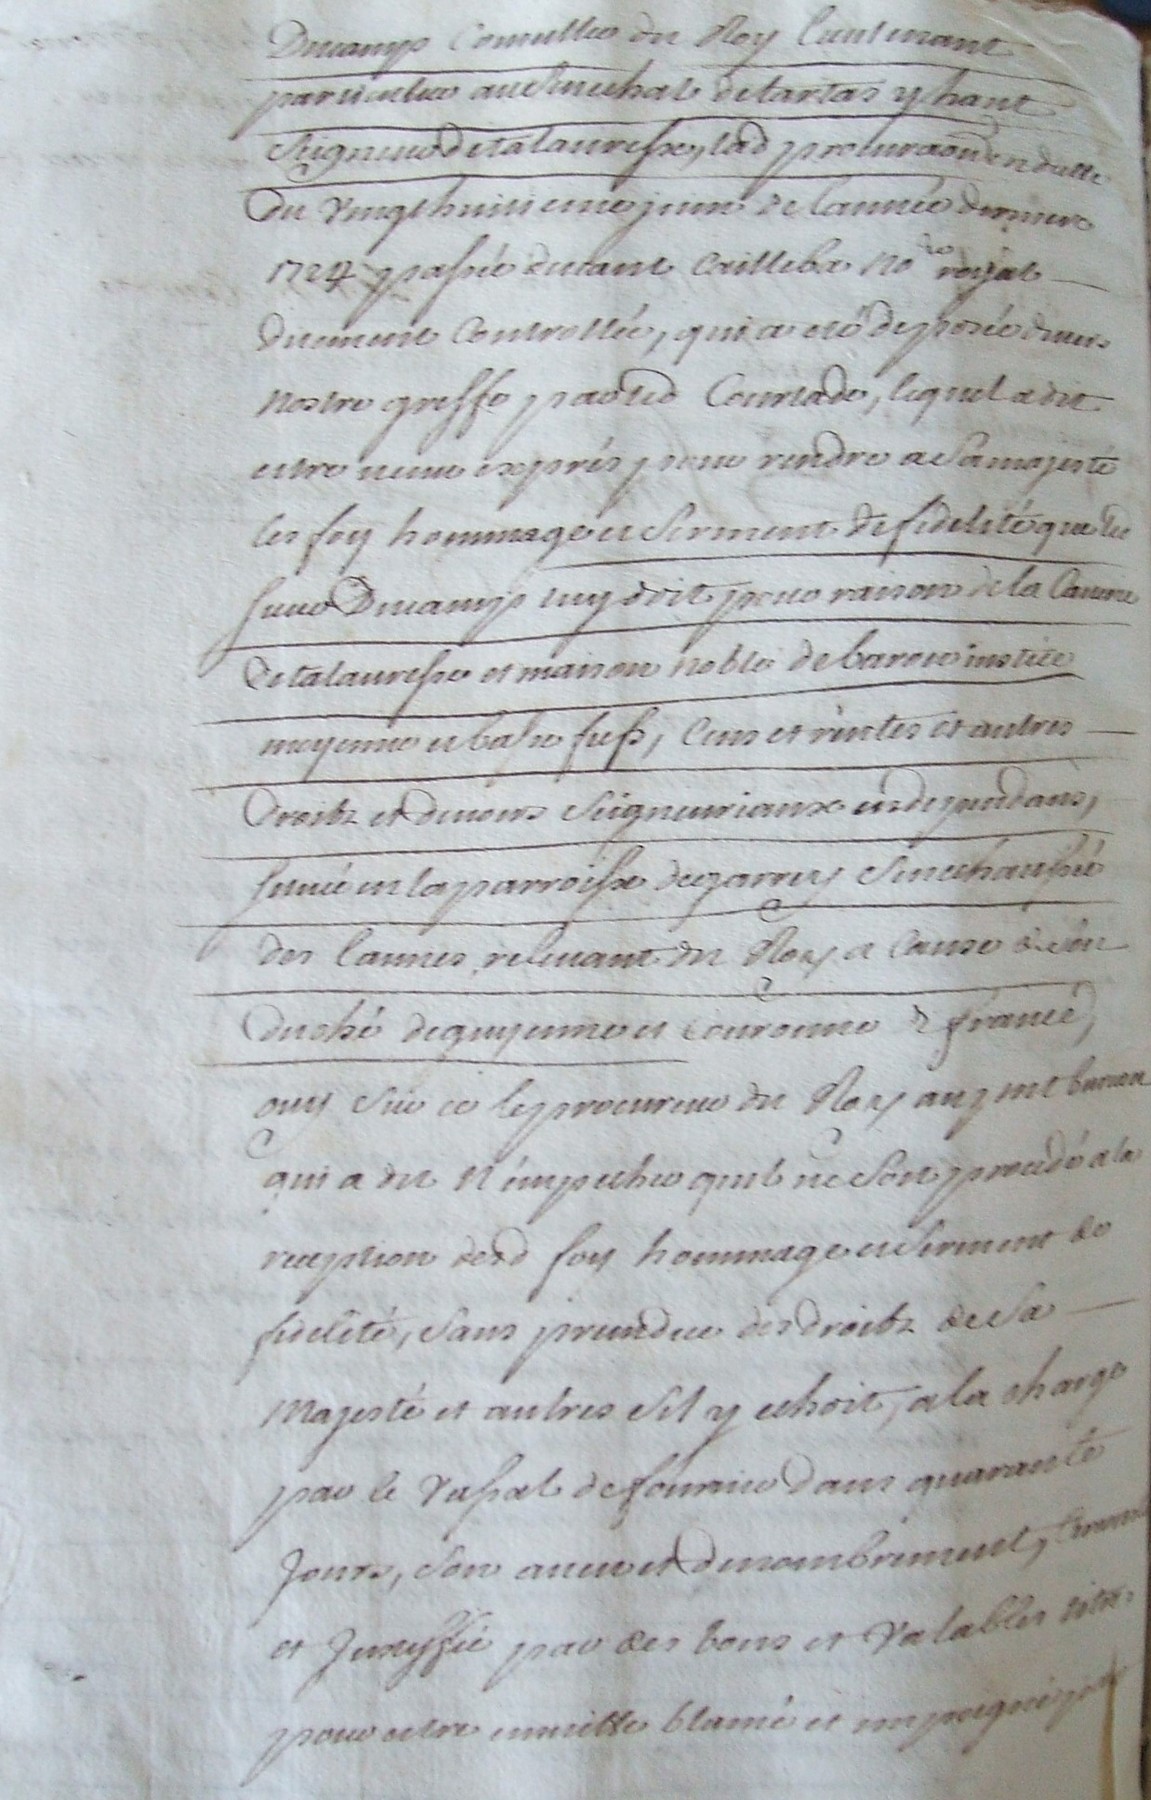 Ducamp Conseiller du Roy Lieutenant
particulier au Senechal de tartas y haut
Seigneur de talauresse, lad procuraon en datte
du vingt huitieme juin de l'année derniere
1724 passée devant Cailleba nore royal
duement Controllée, qui a eté deposée devers
nostre greffe par led Courtade, lequel a dit
estre venu exprés pour rendre a Sa majesté
les foy hommage et Serment de fidelité que led
Sieur Ducamp luy doit pour raison de la Caverie
de talauresse et maison noble de justice
moyenne et basse fiefs, Cens et rentes et autres
droits et devoirs Seigneuriaux en dependans,
Scitué en la parroisse dozarrey Senechaussée
des lannes, relevant du Roy a Cause de Son
duché de guyenne et couronne de france,
ouy Sur ce le procureur du Roy au pnt bureau
qui a dit N'empecher quil ne Soit procedé a la
reception desd foy hommage et Serment de
fidelité, Sans prejudice des droits de Sa
Majesté et autres S'il y echoit, a la charge
par le vassal de fournir dans quarante
Jours, Son aveu et denombrement,
et Justiffié par des bons et valables titres
pour estre ensuitte blamé et impugné par